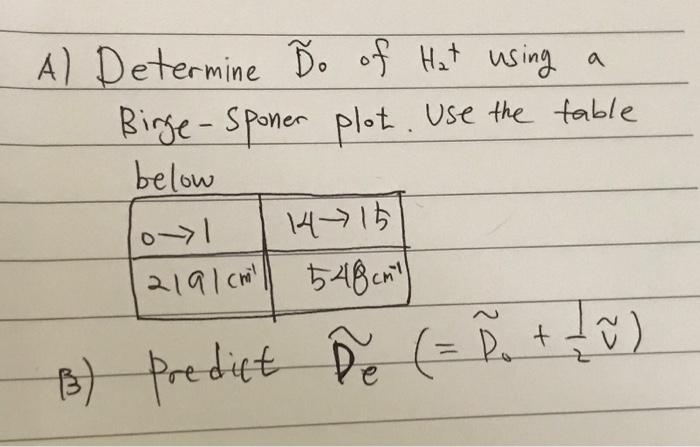 A) Determine D̃₀ of H₂⁺ using a
Birge-Sponer plot. Use the table
below
0→1 14→15
2191cm⁻¹ 548cm⁻¹
B) Predict D̃e (= D̃₀ + ½ṽ)